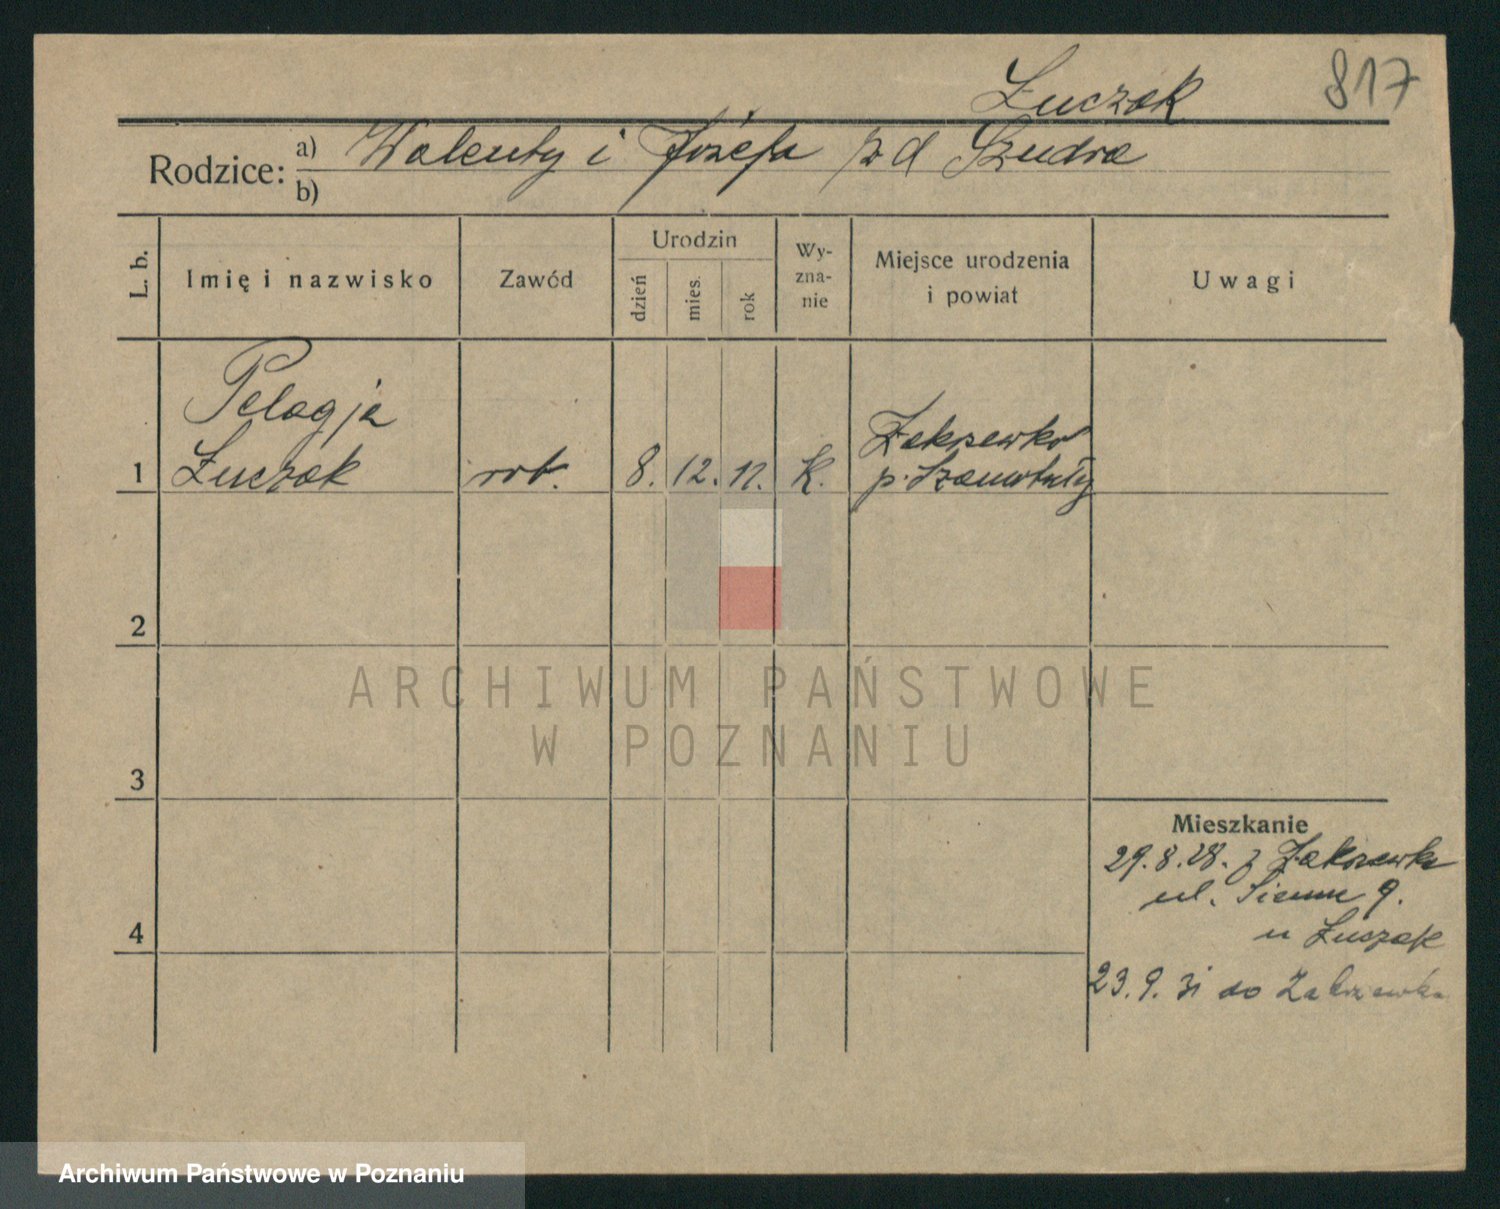 Łuczak
817
Rodzice: a) Walenty i Józefa z d Szudra
b)
L. b.
Imię i nazwisko
Zawód
Urodzin
dzień
mies.
rok
Wy-
zna-
nie
Miejsce urodzenia
i powiat
Uwagi
Pelagja
1 Łuczak rob. 8. 12. 11. K. Zakrzewko
p. Szamotuły
2
3
4
Mieszkanie
29.8.28. z Zakrzewka
ul. 9.
u Łuczak
23.9.31 do Zakrzewka
ARCHIWUM PAŃSTWOWE
W POZNANIU
Archiwum Państwowe w Poznaniu